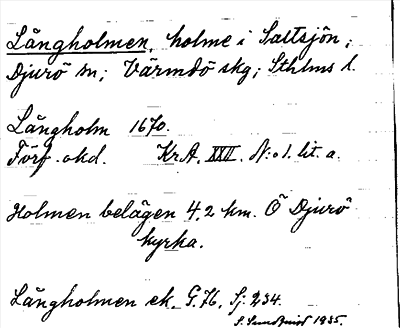 Långholmen, holme i Saltsjön;
Djurö sn; Värmdö skg; Sthlms l.
Långholm 1670.
Förf. okd. Kr.A. XXII. N:o 1. lit. a.
Holmen belägen 4,2 km. Ö Djurö
kyrka.
Långholmen ek. G.76, Sj: 234.
S. Sundqvist 1935.